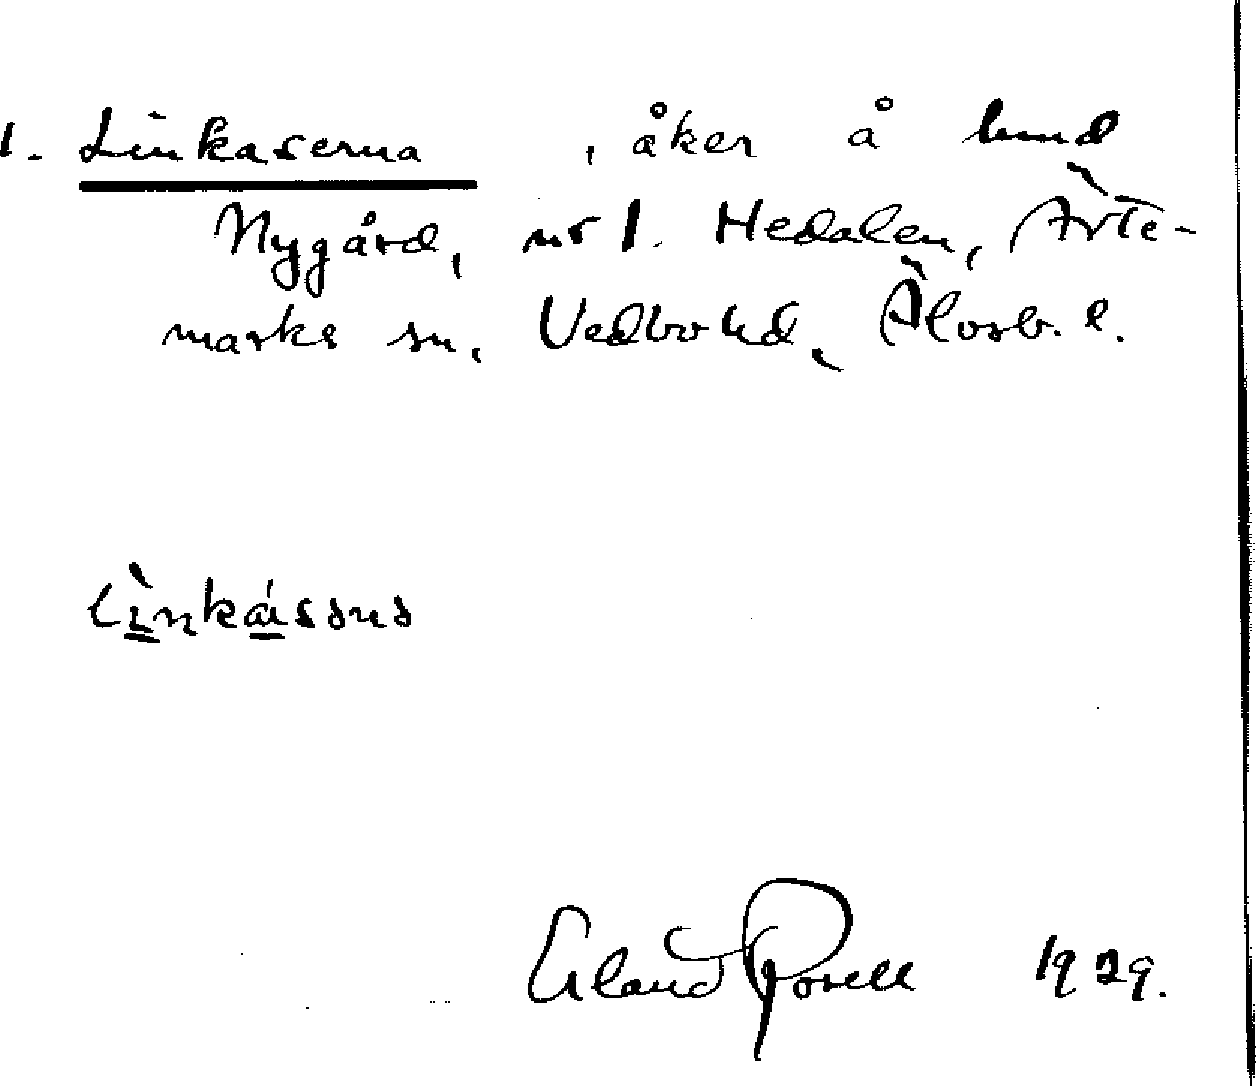 1. Linkaserna , åker å hmd
Nygård, nr 1. Hedalen, Ärte-
marks sn, Vedbo hd, Älvsb. l.
lìnkásənə
Erland Rosell 1929.